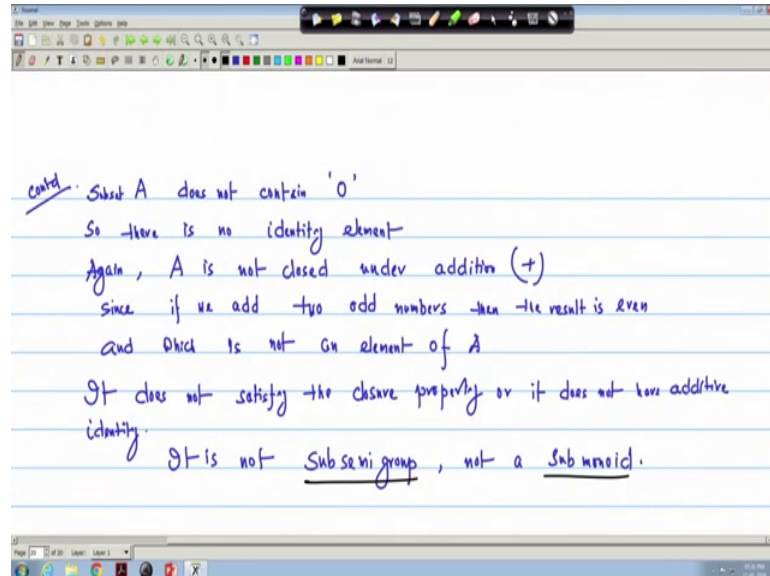 Journal
File Edit View Page Tools Options Help
Arial Normal 12
contd. Subset A does not contain '0'
So there is no identity element
Again, A is not closed under addition (+)
since if we add two odd numbers then the result is even
and which is not an element of A
It does not satisfy the closure property or it does not have additive
identity.
It is not Subsemigroup, not a Submonoid.
Page 20 of 20 Layer: Layer 1